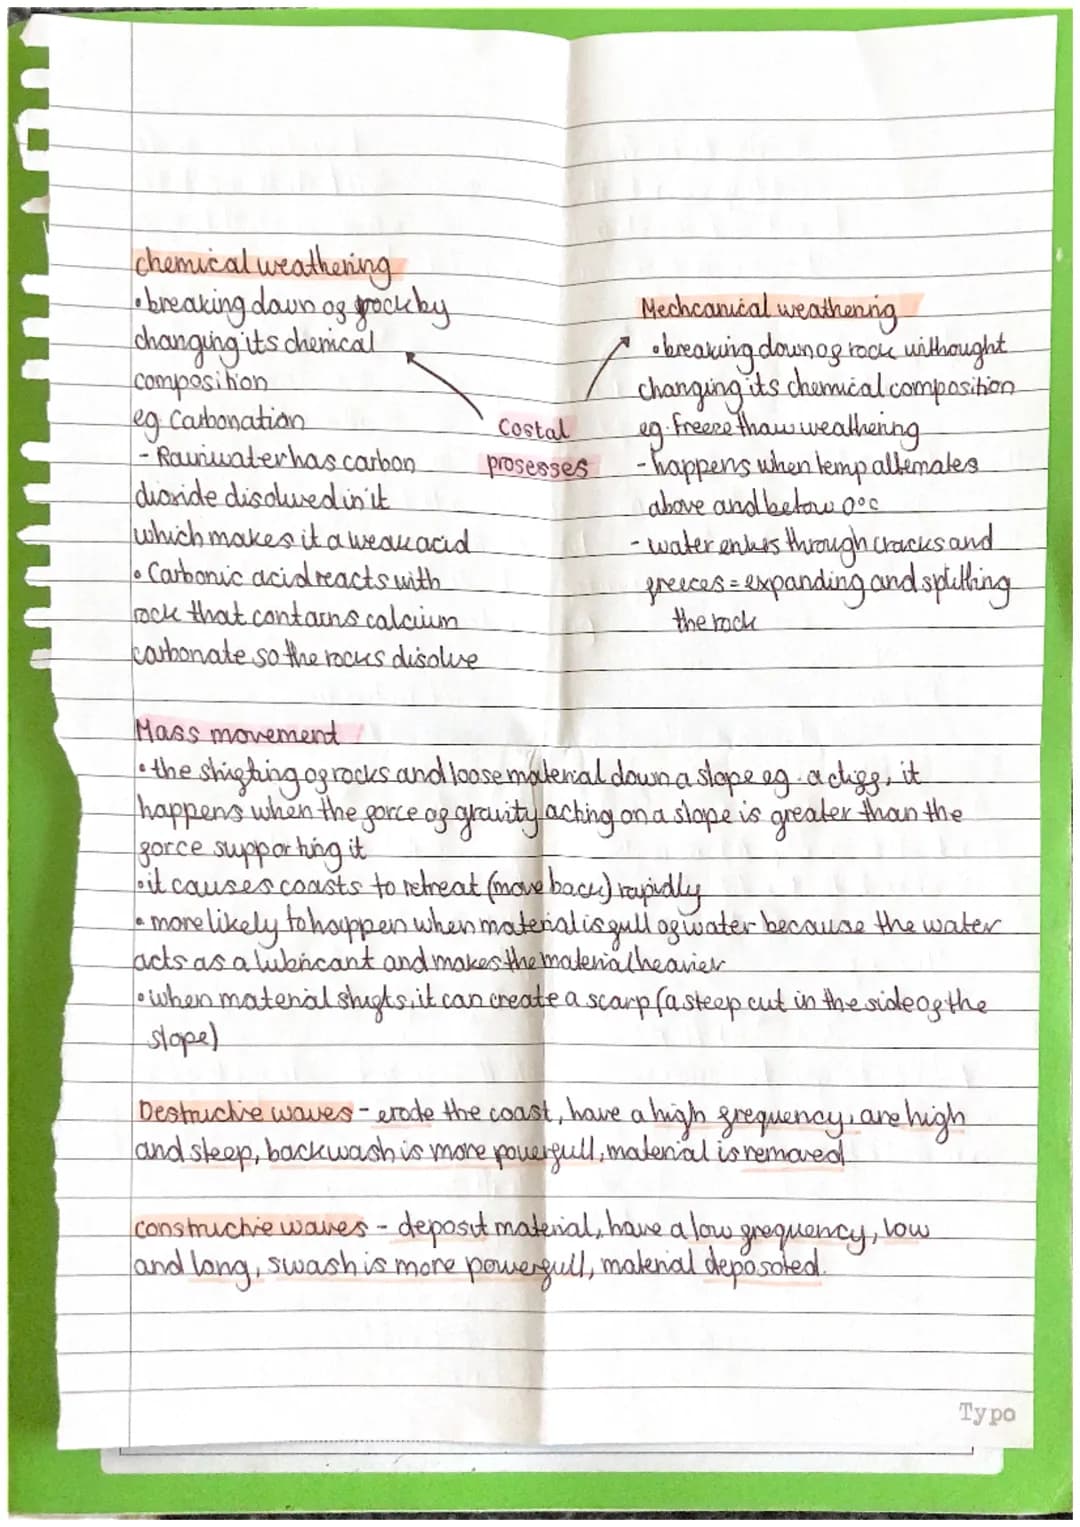 chemical weathering
• breaking down of rock by
changing its chemical
composition
eg Carbonation
- Rainwater has carbon
dioxide disolved in it
which makes it a weak acid
• Carbonic acid reacts with
rock that contains calcium
carbonate so the rocks disolve
Costal
prosesses
Mechcanical weathering
• breaking down of rock withought
changing its chemical composition
eg. freeze thaw weathering
- happens when temp alternates
above and below 0°c
- water enters through cracks and
freeces = expanding and splitting
the rock
Mass movement
• the shifting of rocks and loose material down a slope eg. a cliff, it
happens when the force of gravity acting on a slope is greater than the
force supporting it
• it causes coasts to retreat (move back) rapidly
• more likely to happen when material is full of water because the water
acts as a lubricant and makes the material heavier
• when material shifts, it can create a scarp (a steep cut in the side of the
slope)
Destructive waves - erode the coast, have a high frequency, are high
and steep, backwash is more powerfull, material is removed
constructive waves - deposit material, have a low frequency, low
and long, swash is more powerfull, material deposoted.
Typo